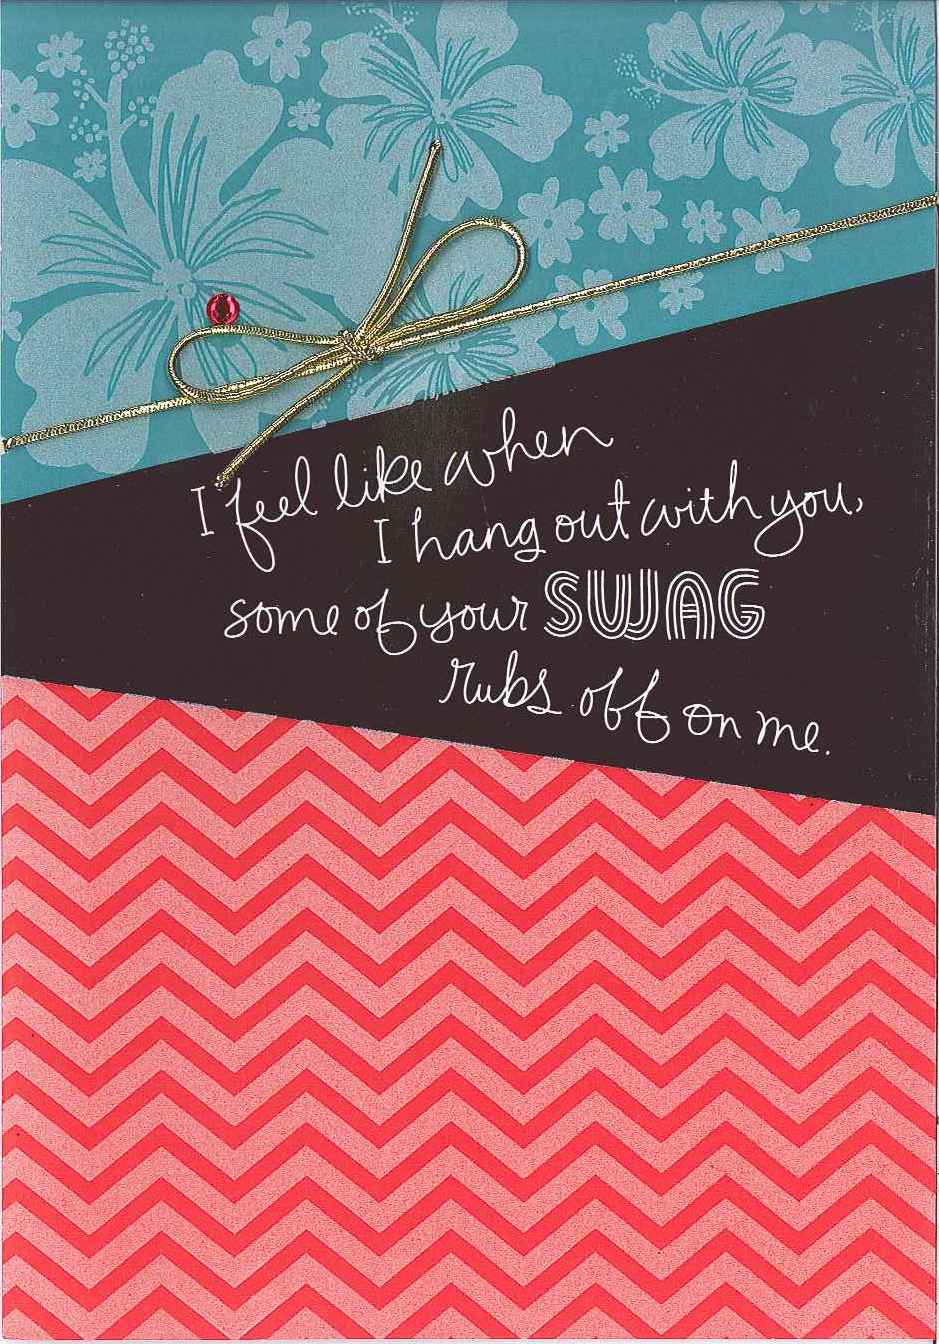 I feel like when
I hang out with you,
some of your SWAG
rubs off on me.